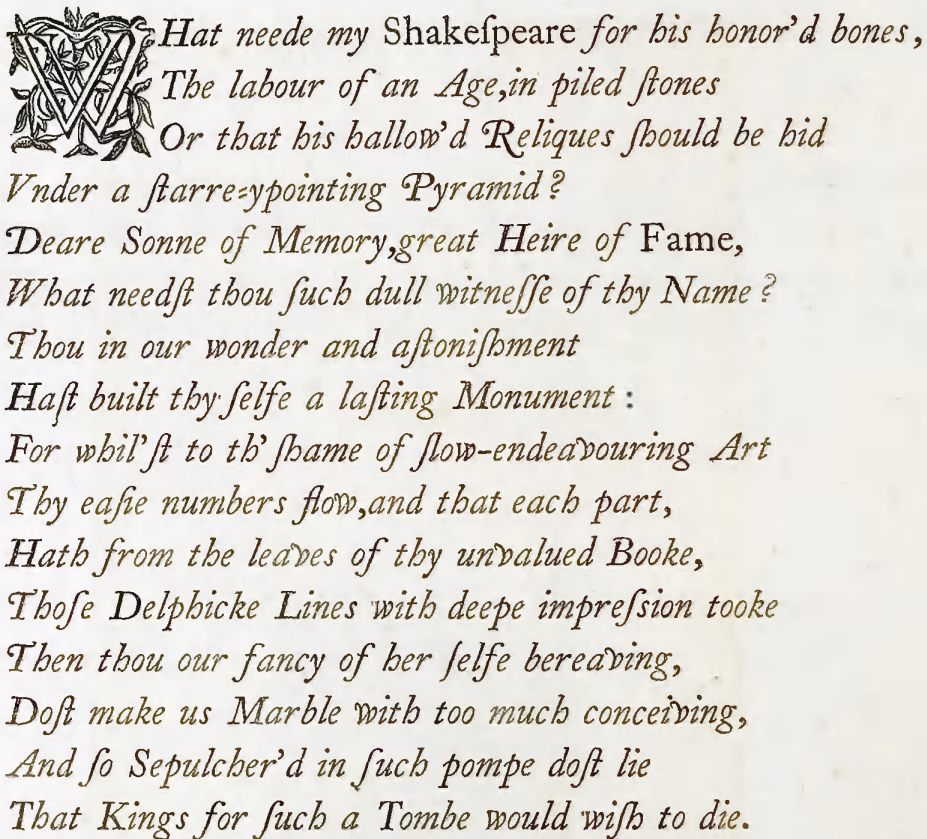 WHat neede my Shakeſpeare for his honor'd bones,
The labour of an Age,in piled ſtones
Or that his hallow'd Reliques ſhould be hid
Vnder a ſtarre-ypointing Pyramid?
Deare Sonne of Memory,great Heire of Fame,
What needſt thou ſuch dull witneſſe of thy Name?
Thou in our wonder and aſtoniſhment
Haſt built thy ſelfe a laſting Monument:
For whil'ſt to th' ſhame of ſlow-endeavouring Art
Thy eaſie numbers flow,and that each part,
Hath from the leaves of thy unvalued Booke,
Thoſe Delphicke Lines with deepe impreſsion tooke
Then thou our fancy of her ſelfe bereaving,
Doſt make us Marble with too much conceiving,
And ſo Sepulcher'd in ſuch pompe doſt lie
That Kings for ſuch a Tombe would wiſh to die.